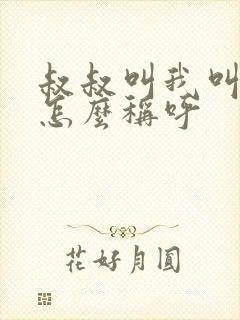 叔叔叫我叫
怎麼稱呼
花好月圓